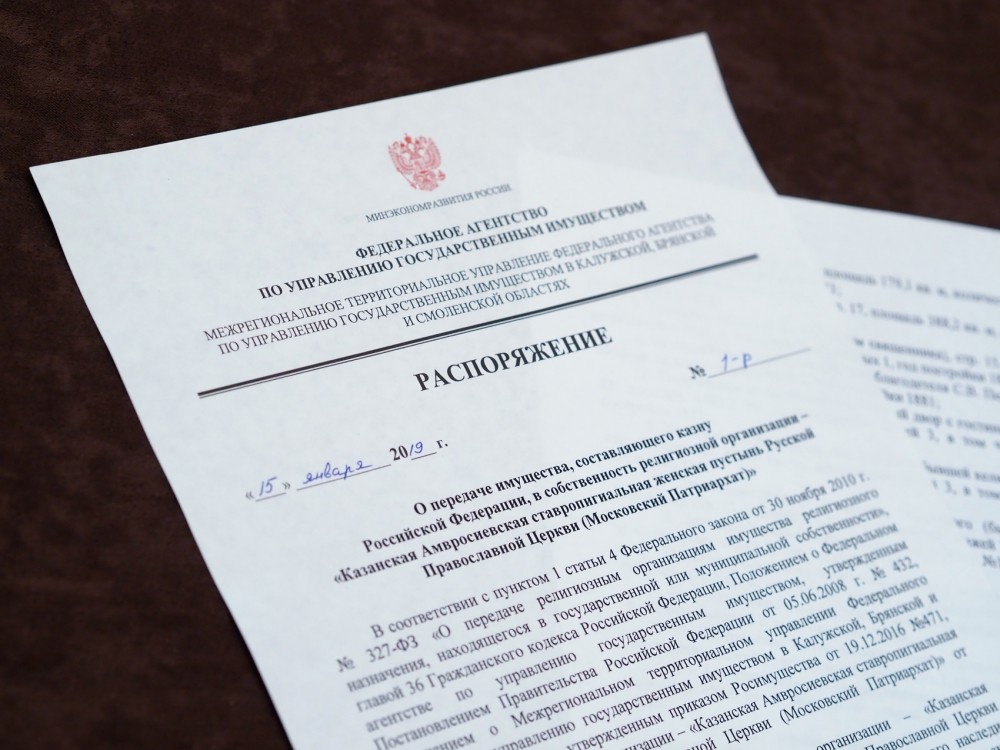 МИНЭКОНОМРАЗВИТИЯ РОССИИ
ФЕДЕРАЛЬНОЕ АГЕНТСТВО
ПО УПРАВЛЕНИЮ ГОСУДАРСТВЕННЫМ ИМУЩЕСТВОМ
МЕЖРЕГИОНАЛЬНОЕ ТЕРРИТОРИАЛЬНОЕ УПРАВЛЕНИЕ ФЕДЕРАЛЬНОГО АГЕНТСТВА
ПО УПРАВЛЕНИЮ ГОСУДАРСТВЕННЫМ ИМУЩЕСТВОМ В КАЛУЖСКОЙ, БРЯНСКОЙ
И СМОЛЕНСКОЙ ОБЛАСТЯХ
РАСПОРЯЖЕНИЕ
«15» января 2019 г. № 1-р
О передаче имущества, составляющего казну
Российской Федерации, в собственность религиозной организации –
«Казанская Амвросиевская ставропигиальная женская пустынь Русской
Православной Церкви (Московский Патриархат)»
В соответствии с пунктом 1 статьи 4 Федерального закона от 30 ноября 2010 г.
№ 327-ФЗ «О передаче религиозным организациям имущества религиозного
назначения, находящегося в государственной или муниципальной собственности»,
главой 36 Гражданского кодекса Российской Федерации, Положением о Федеральном
агентстве по управлению государственным имуществом, утвержденным
Постановлением Правительства Российской Федерации от 05.06.2008 г. № 432,
о Межрегиональном территориальном управлении Федерального
государственным имуществом в Калужской, Брянской и
утвержденным приказом Росимущества от 19.12.2016 №471,
– «Казанская Амвросиевская ставропигиальная
Церкви (Московский Патриархат)» от
организации – «Казанская
Православной Церкви
17, площадь
1881;